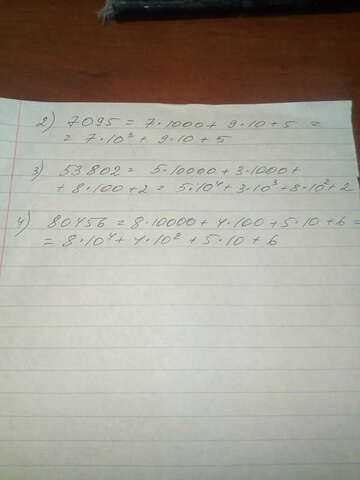 2) 7095 = 7·1000 + 9·10 + 5 =
= 7·10³ + 9·10 + 5
3) 53802 = 5·10000 + 3·1000 +
+ 8·100 + 2 = 5·10⁴ + 3·10³ + 8·10² + 2
4) 80456 = 8·10000 + 4·100 + 5·10 + 6 =
= 8·10⁴ + 4·10² + 5·10 + 6